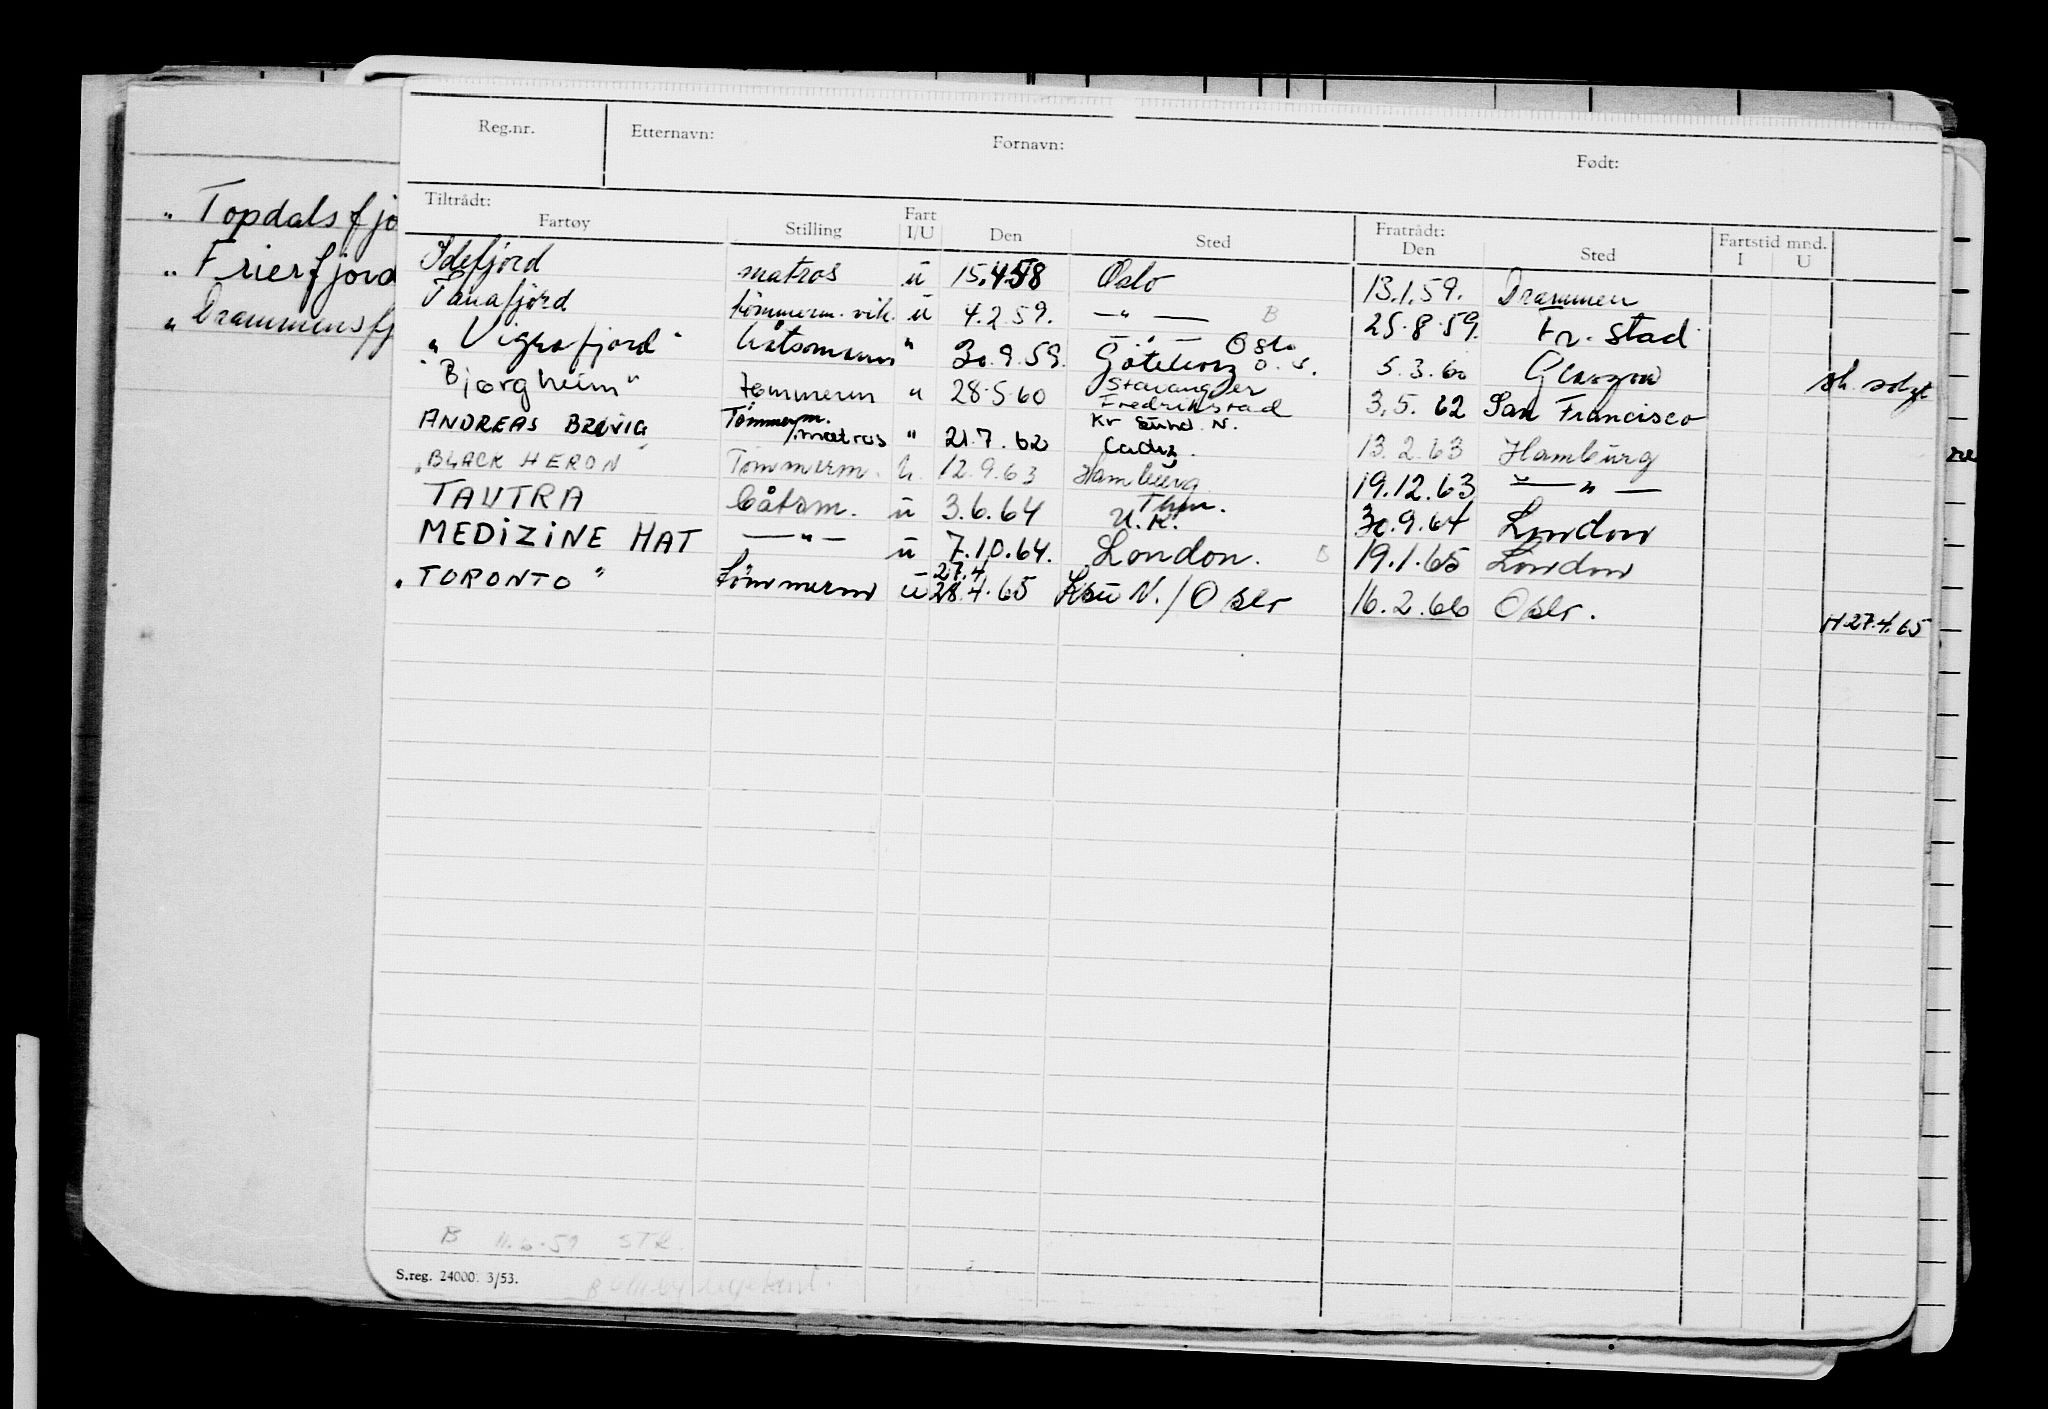 Reg.nr. Etternavn: Fornavn: Født:
Tiltrådt: Fratrådt: Fartstid mnd.
Fartøy Stilling Fart I/U Den Sted Den Sted I U
" Topdalsfjo
" Frierfjord
" Drammensfj
Idefjord matros u 15.4.58 Oslo 13.1.59. Drammen
Tanafjord tömmerm. vik. u 4.2.59. — " — B 25.8.59. Fr.stad
" Vigrafjord " båtsmann " 30.9.59. — " — Oslo Göteborg 5.3.60 Glasgow sk. solgt
" Bjorgheim " tömmerm " 28.5.60 Stavanger Fredrikstad 3.5.62 San Francisco
ANDREAS BREVIG Tömmerm./matros " 21.7.62 Kr sund N. Cadiz. 13.2.63 Hamburg
"BLACK HERON" Tömmerm. u. 12.9.63 Hamburg 19.12.63 — " —
TAUTRA båtsm. u 3.6.64 U.K. 30.9.64 London
MEDIZINE HAT — " — u 7.10.64. London. B 19.1.65 London
" TORONTO " tömmerm u 27.4 28.4.65 Ksu N./Oslo 16.2.66 Oslo. H 27.4.65
B 11.6.59 STR.
S.reg. 24000. 3/53.